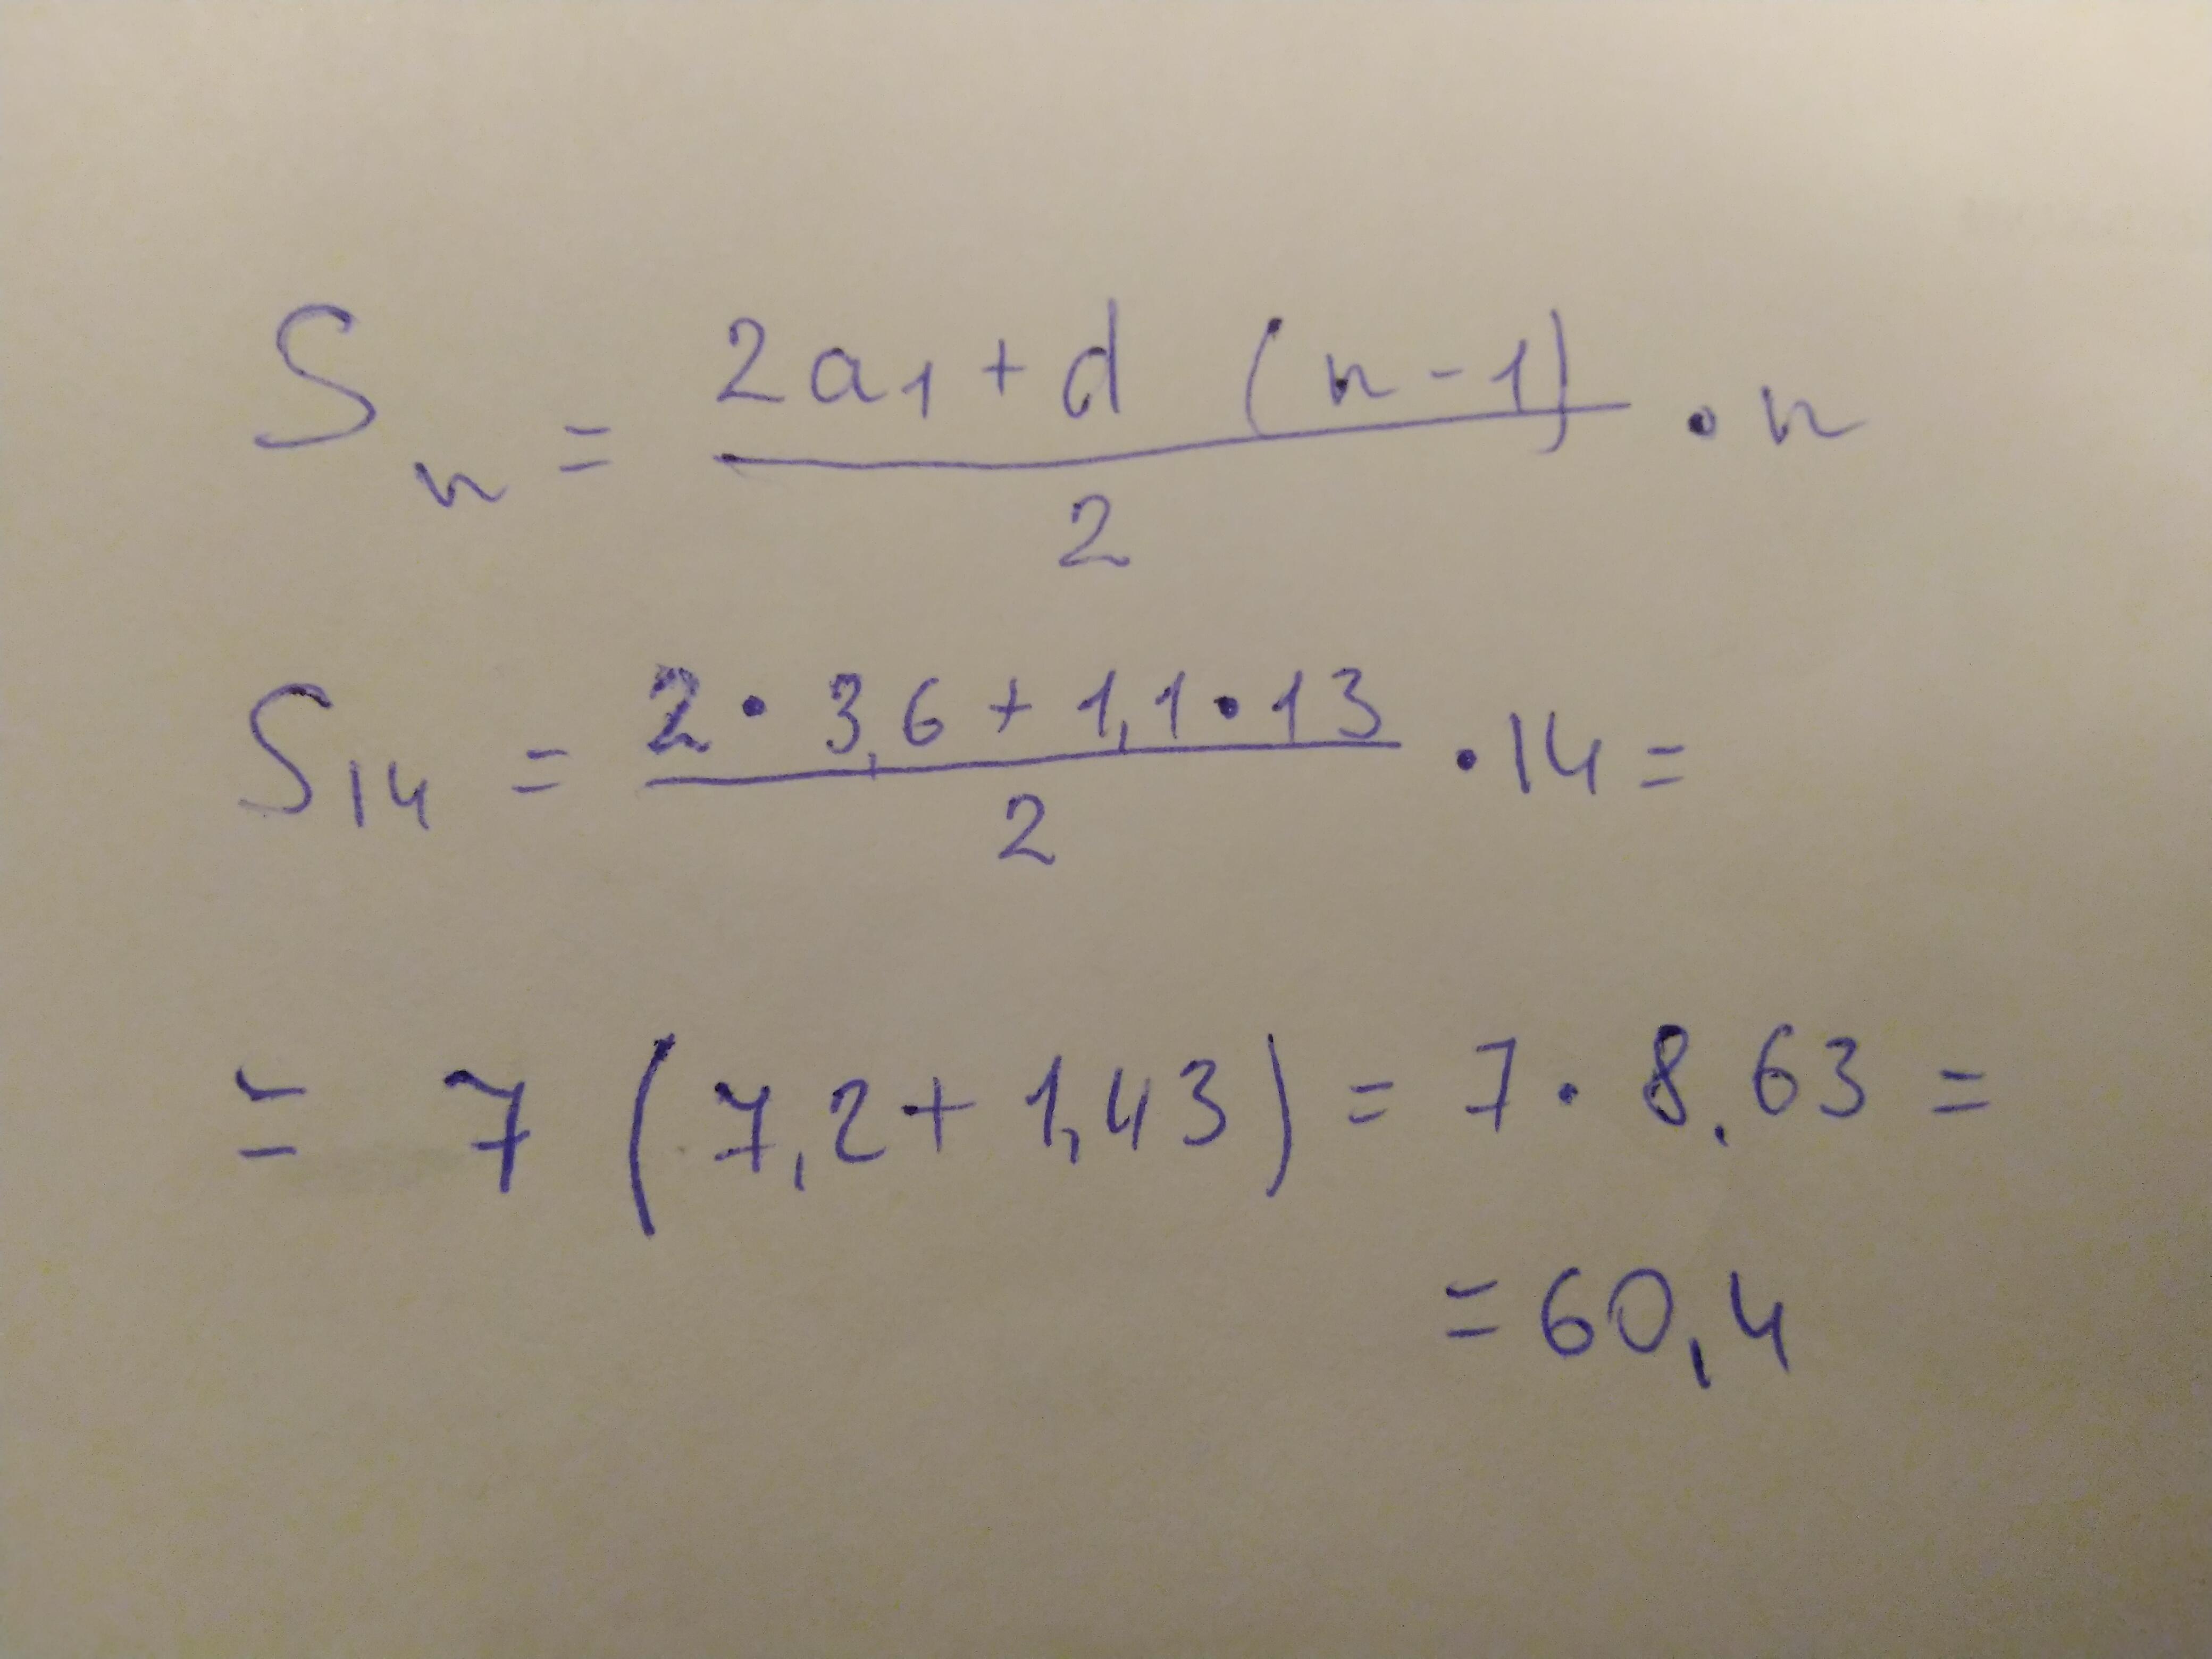 Sn = (2a1 + d (n-1))/2 · n
S14 = (2 · 3,6 + 1,1 · 13)/2 · 14 =
= 7 (7,2 + 1,43) = 7 · 8.63 =
= 60,4